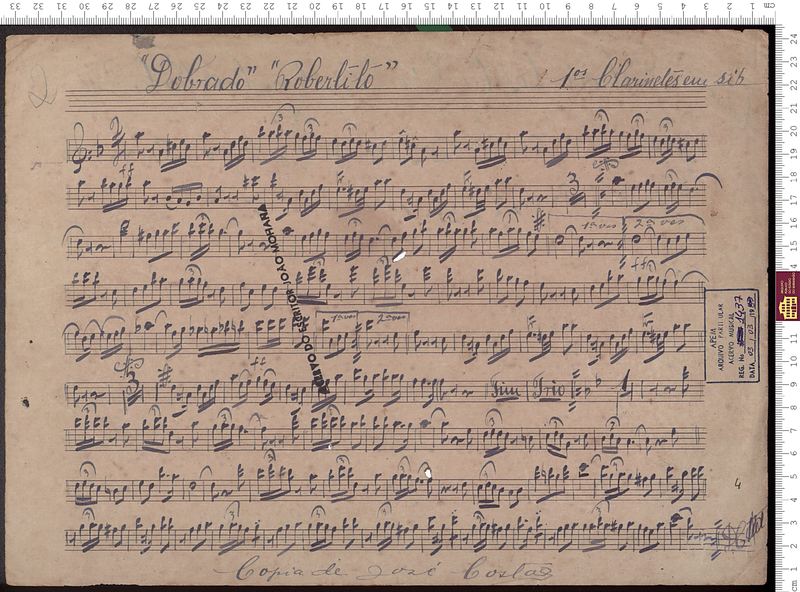 "Dobrado" "Robertito"
1os Clarinetes em sib
ff
1a vez 2a vez
fff
1a vez 2a vez
ff
Fim Trio
ACERVO DO ESCRITOR JOÃO MOHANA
APEJA
ARQUIVO PARTICULAR
ACERVO MUSICAL
REG. No 1437
DATA 03 / 03
4
D.C.
Copia de José Costa